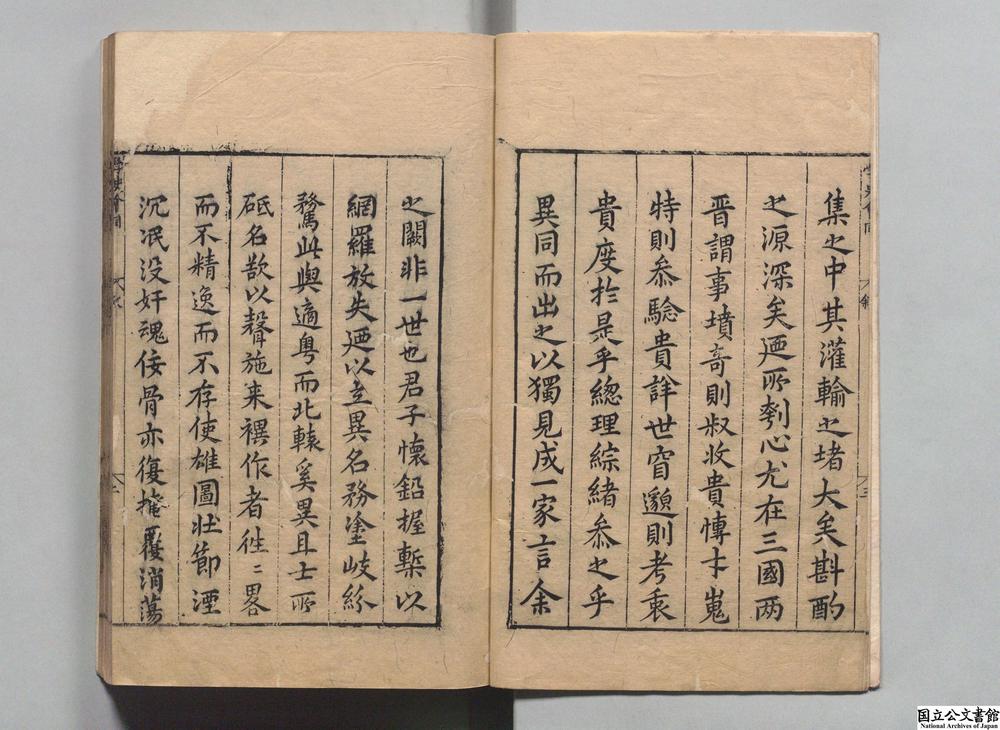 集之中其灌輸之堵大矣斟酌
之源深矣廼所刳心尤在三國两
晉謂事墳奇則叔收貴慱才嵬
特則叅騐貴詳世窅邈則考衷
貴度扵是乎總理綜緒叅之乎
異同而出之以獨見成一家言余
之闕非一世也君子懷鉛握槧以
網羅放失廼以立異名務塗岐紛
騖此與適粤而北轅奚異且士所
砥名歆以聲施来禩作者徃〻畧
而不精逸而不存使雄圖壮節湮
沉泯没奸魂佞骨亦復掩覆消蕩
国立公文書館
National Archives of Japan